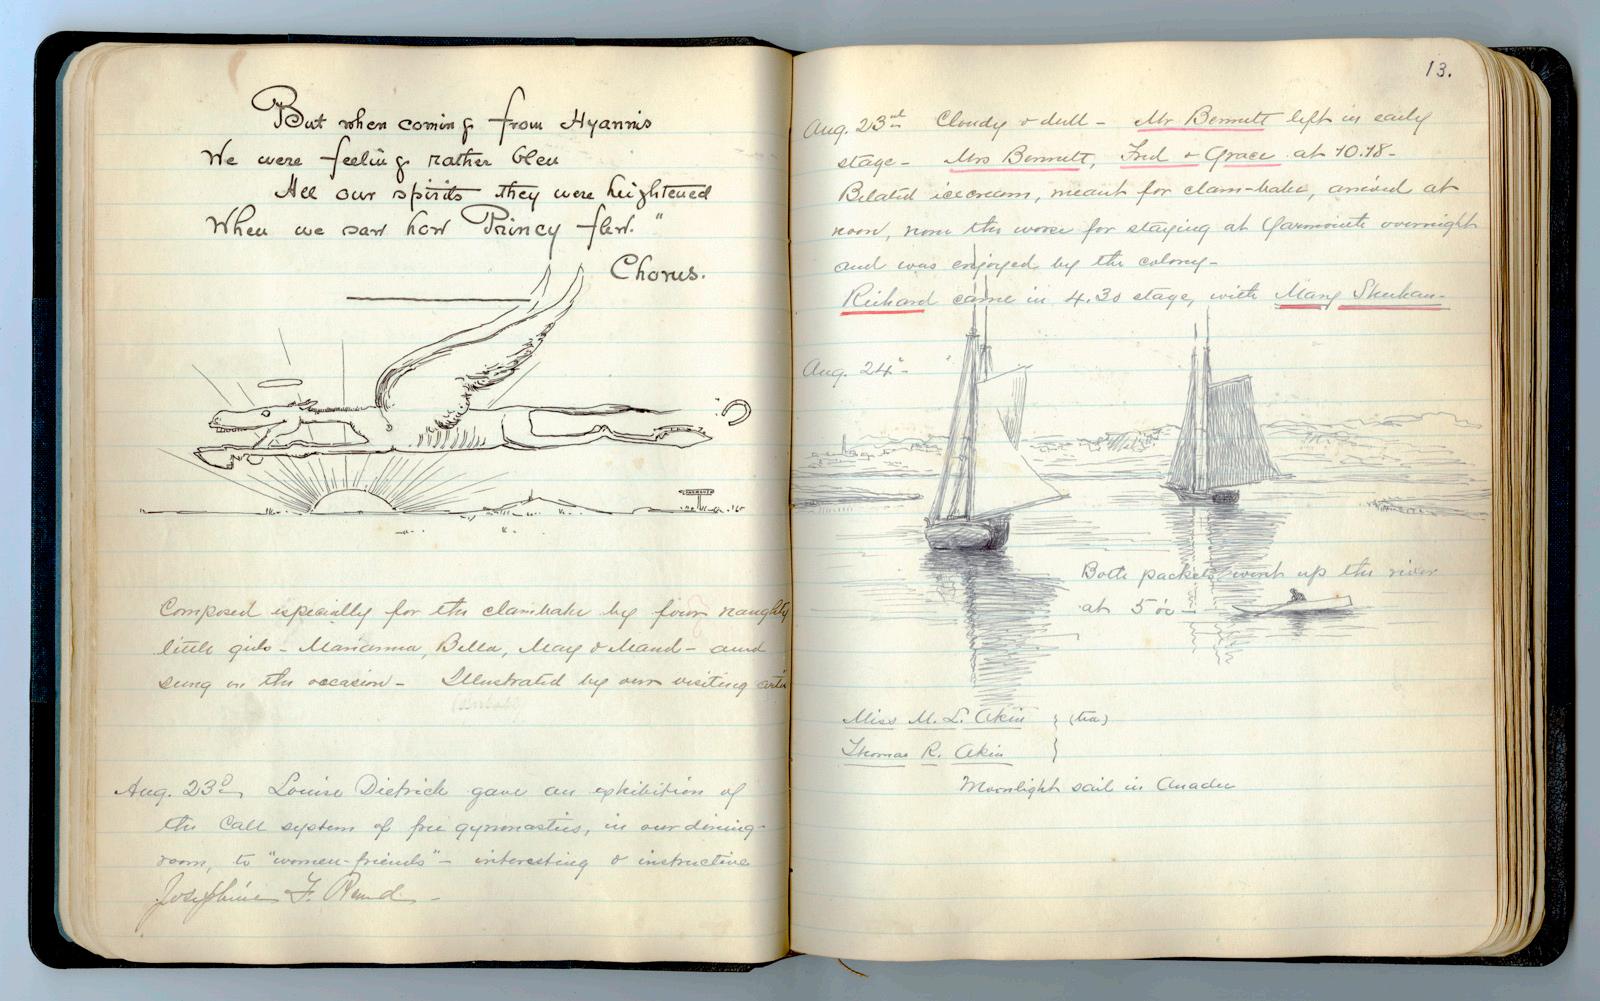 But when coming from Hyannis
We were feeling rather bleu
All our spirits they were heightened
When we saw how Princy flew."
Chorus.
Composed especially for the clambake by four naughty
little girls - Marianna, Bella, May & Maud - and
sung on the occasion - Illustrated by our visiting
Aug. 23d, Louise Dietrick gave an exhibition of
the Call system of free gymnastics, in our dining-
room, to "women-friends" - interesting & instructive
Josephine F.
13.
Aug. 23rd Cloudy & dull - Mr Bennett left in early
stage - Mrs Bennett, Fred & Grace at 10.18 -
Belated icecream, meant for clam-bake, arrived at
noon, none the worse for staying at Yarmouth overnight
and was enjoyed by the colony -
Richard came in 4.30 stage, with Mary
Aug. 24 -
Both packets went up the river
at 5 oc -
Miss M. L. Akin } (tea)
Thomas R. Akin }
Moonlight sail in